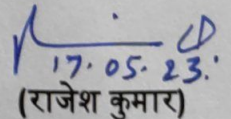 17.05.23.
(राजेश कुमार)